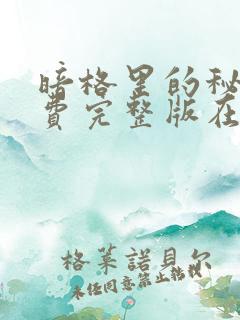 暗格里的秘
费完整版在
格莱諾貝尔
未经同意禁止转载